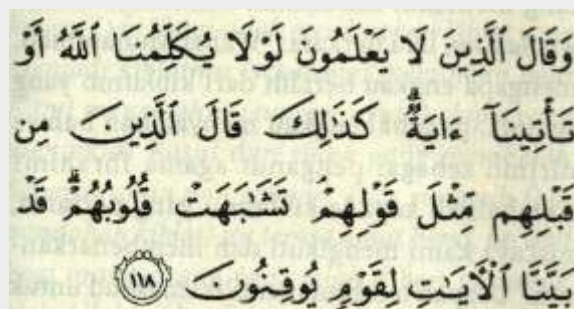 وَقَالَ ٱلَّذِينَ لَا يَعْلَمُونَ لَوْلَا يُكَلِّمُنَا ٱللَّهُ أَوْ
تَأْتِينَآ ءَايَةٌ ۗ كَذَٰلِكَ قَالَ ٱلَّذِينَ مِن
قَبْلِهِم مِّثْلَ قَوْلِهِمْ ۘ تَشَٰبَهَتْ قُلُوبُهُمْ ۗ قَدْ
بَيَّنَّا ٱلْءَايَٰتِ لِقَوْمٍ يُوقِنُونَ ١١٨